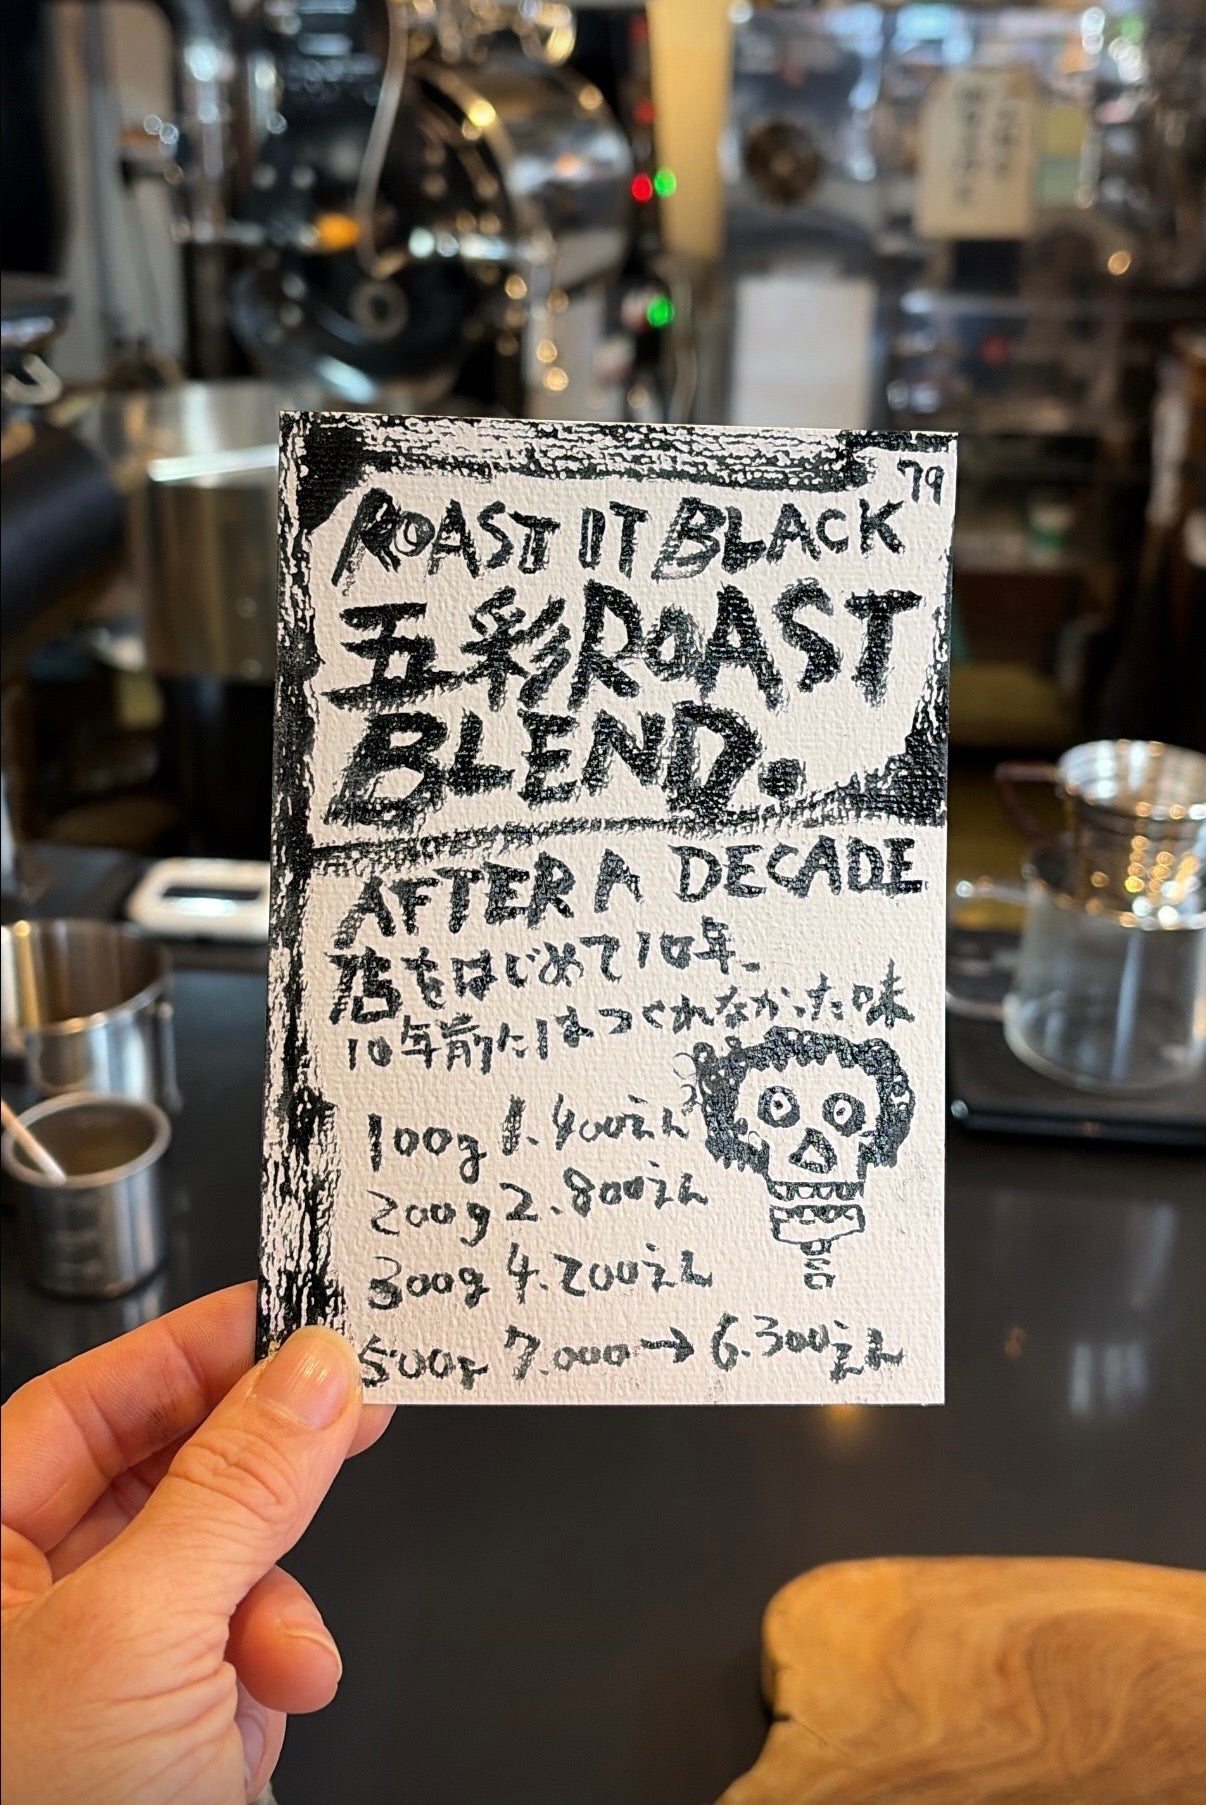 79
ROAST IT BLACK
五彩ROAST
BLEND.
AFTER A DECADE
店をはじめて10年、
10年前にはつくれなかった味
100g 1.400えん
200g 2.800えん
300g 4.200えん
500g 7.000→6.300えん